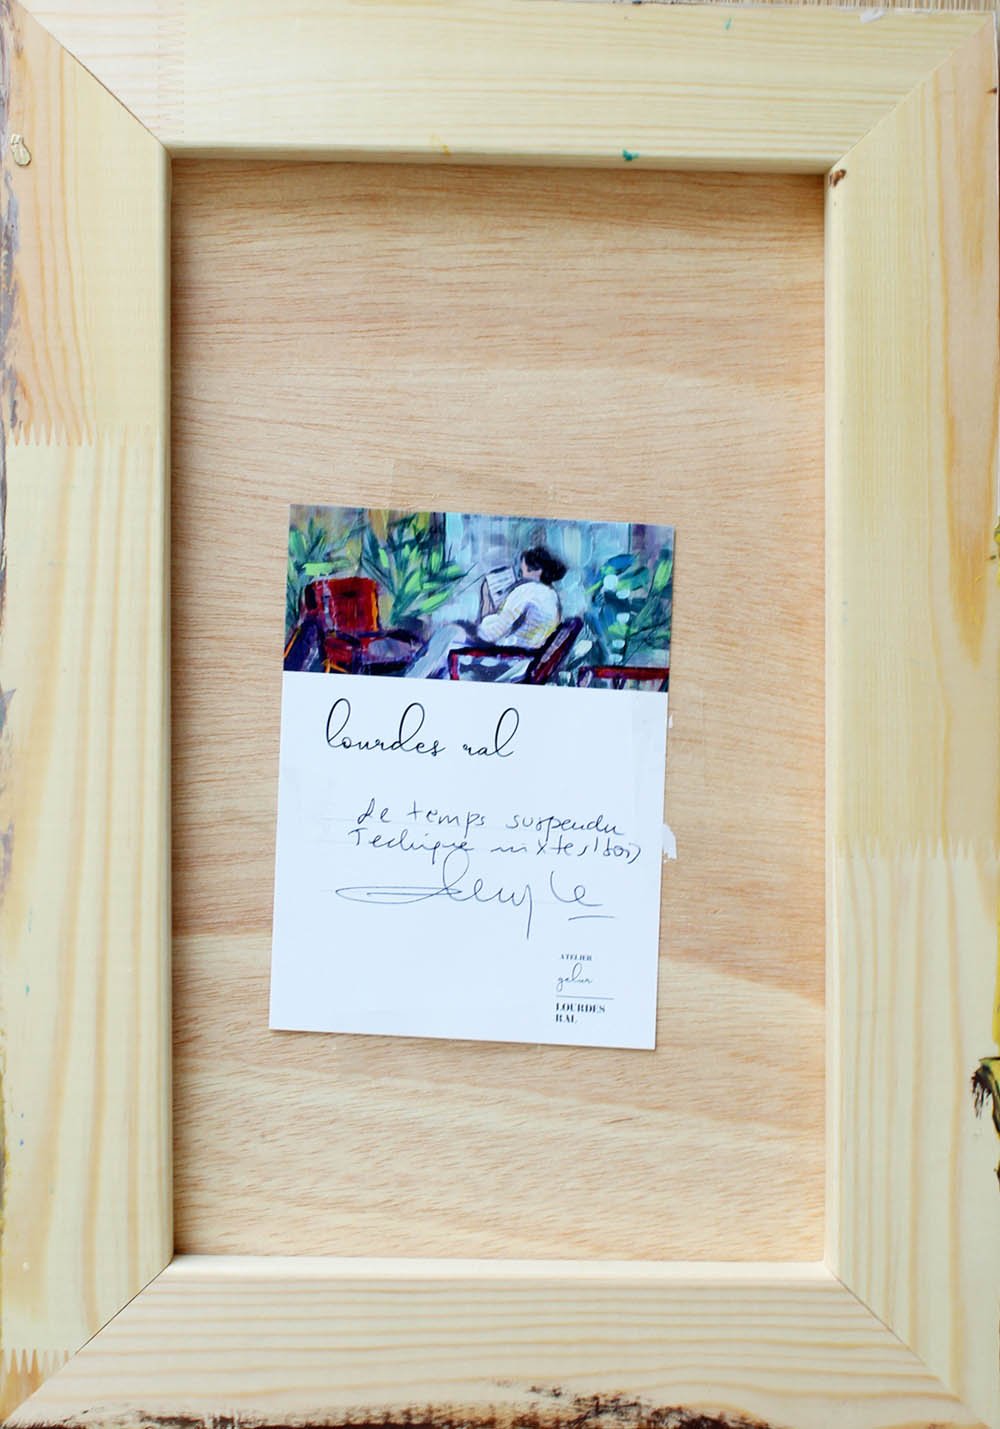 lourdes ral
Le temps suspendu
Technique mixte/bois
ATELIER
galur
LOURDES
RAL